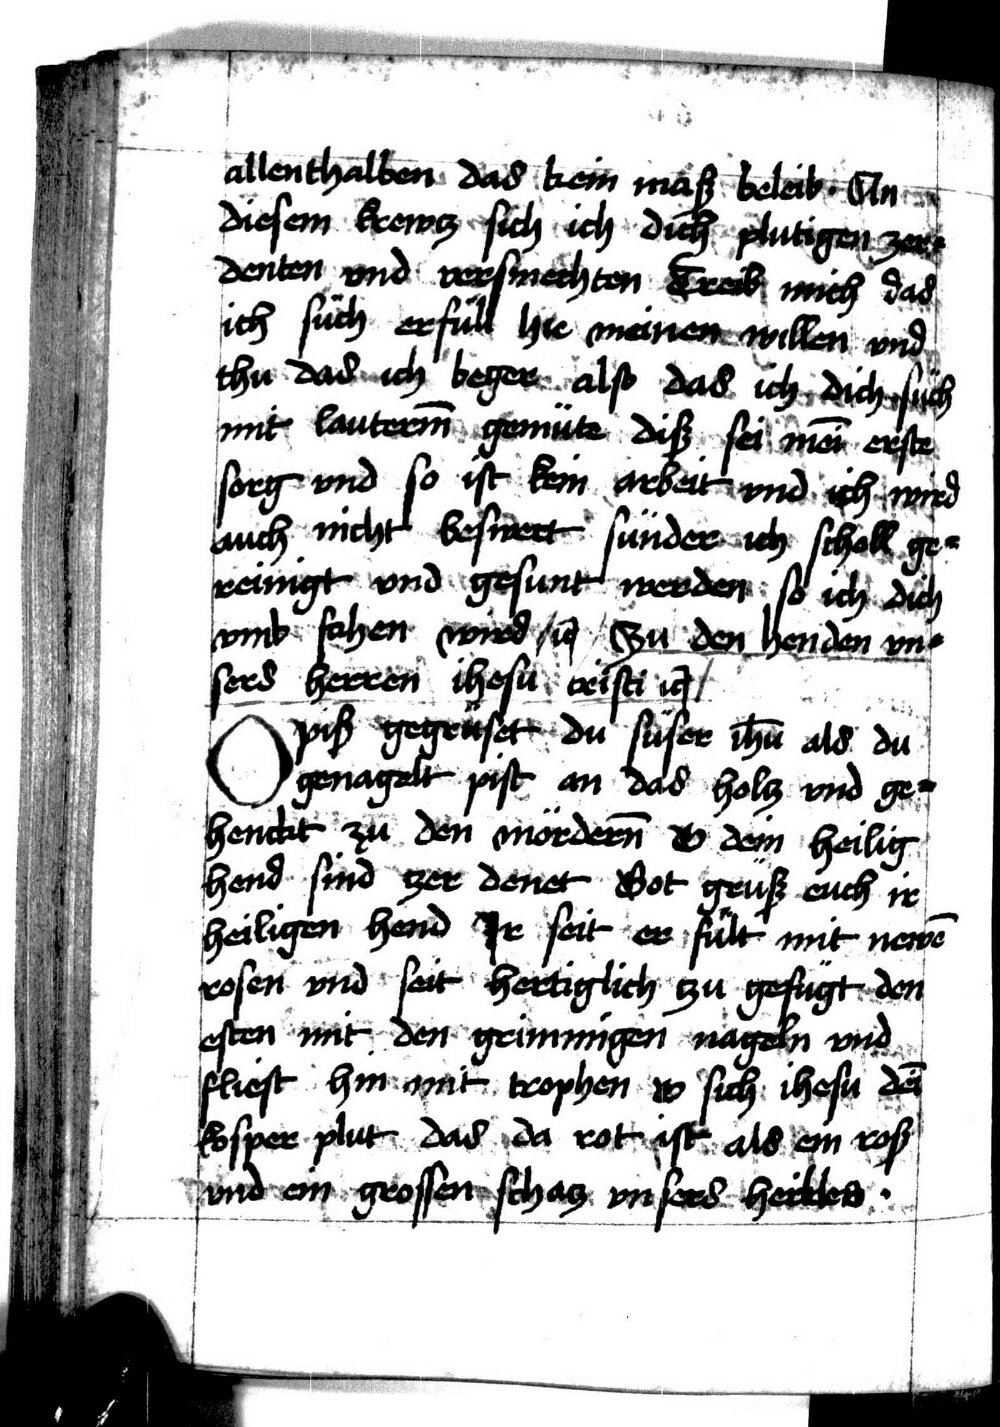 allenthalben das kein maß beleib · An
diesem krewtz sich ich dich plutigen zer-
denten vnd versmechten Treib mich das
ich süch erfüll hie meinen willen vnd
thu das ich beger also das ich dich süch
mit lauterm̄ gemüte diß sei mei̅ erste
sorg vnd so ist kein arbeit vnd ich wird
auch nicht beswert sünder ich scholl ge-
reinigt vnd gesunt werden so ich dich
vmb fahen wird Zu den henden vn-
sers herren ihesu cristi
O piß gegrüset du süser ih̅u als du
genagelt pist an das holtz vnd ge-
henckt zu den mördern̅ O dein heilig
hend sind tzer denet Got grüß euch ir
heiligen hend Ir seit er fült mit newe̅
rosen vnd seit hertiglich tzu gefügt den
esten mit den grimmigen nageln vnd
fliest hin mit trophen O sich ihesu dei̅
kosper plut das da rot ist als ein roß
vnd ein grossen schatz vnsers heilles ·